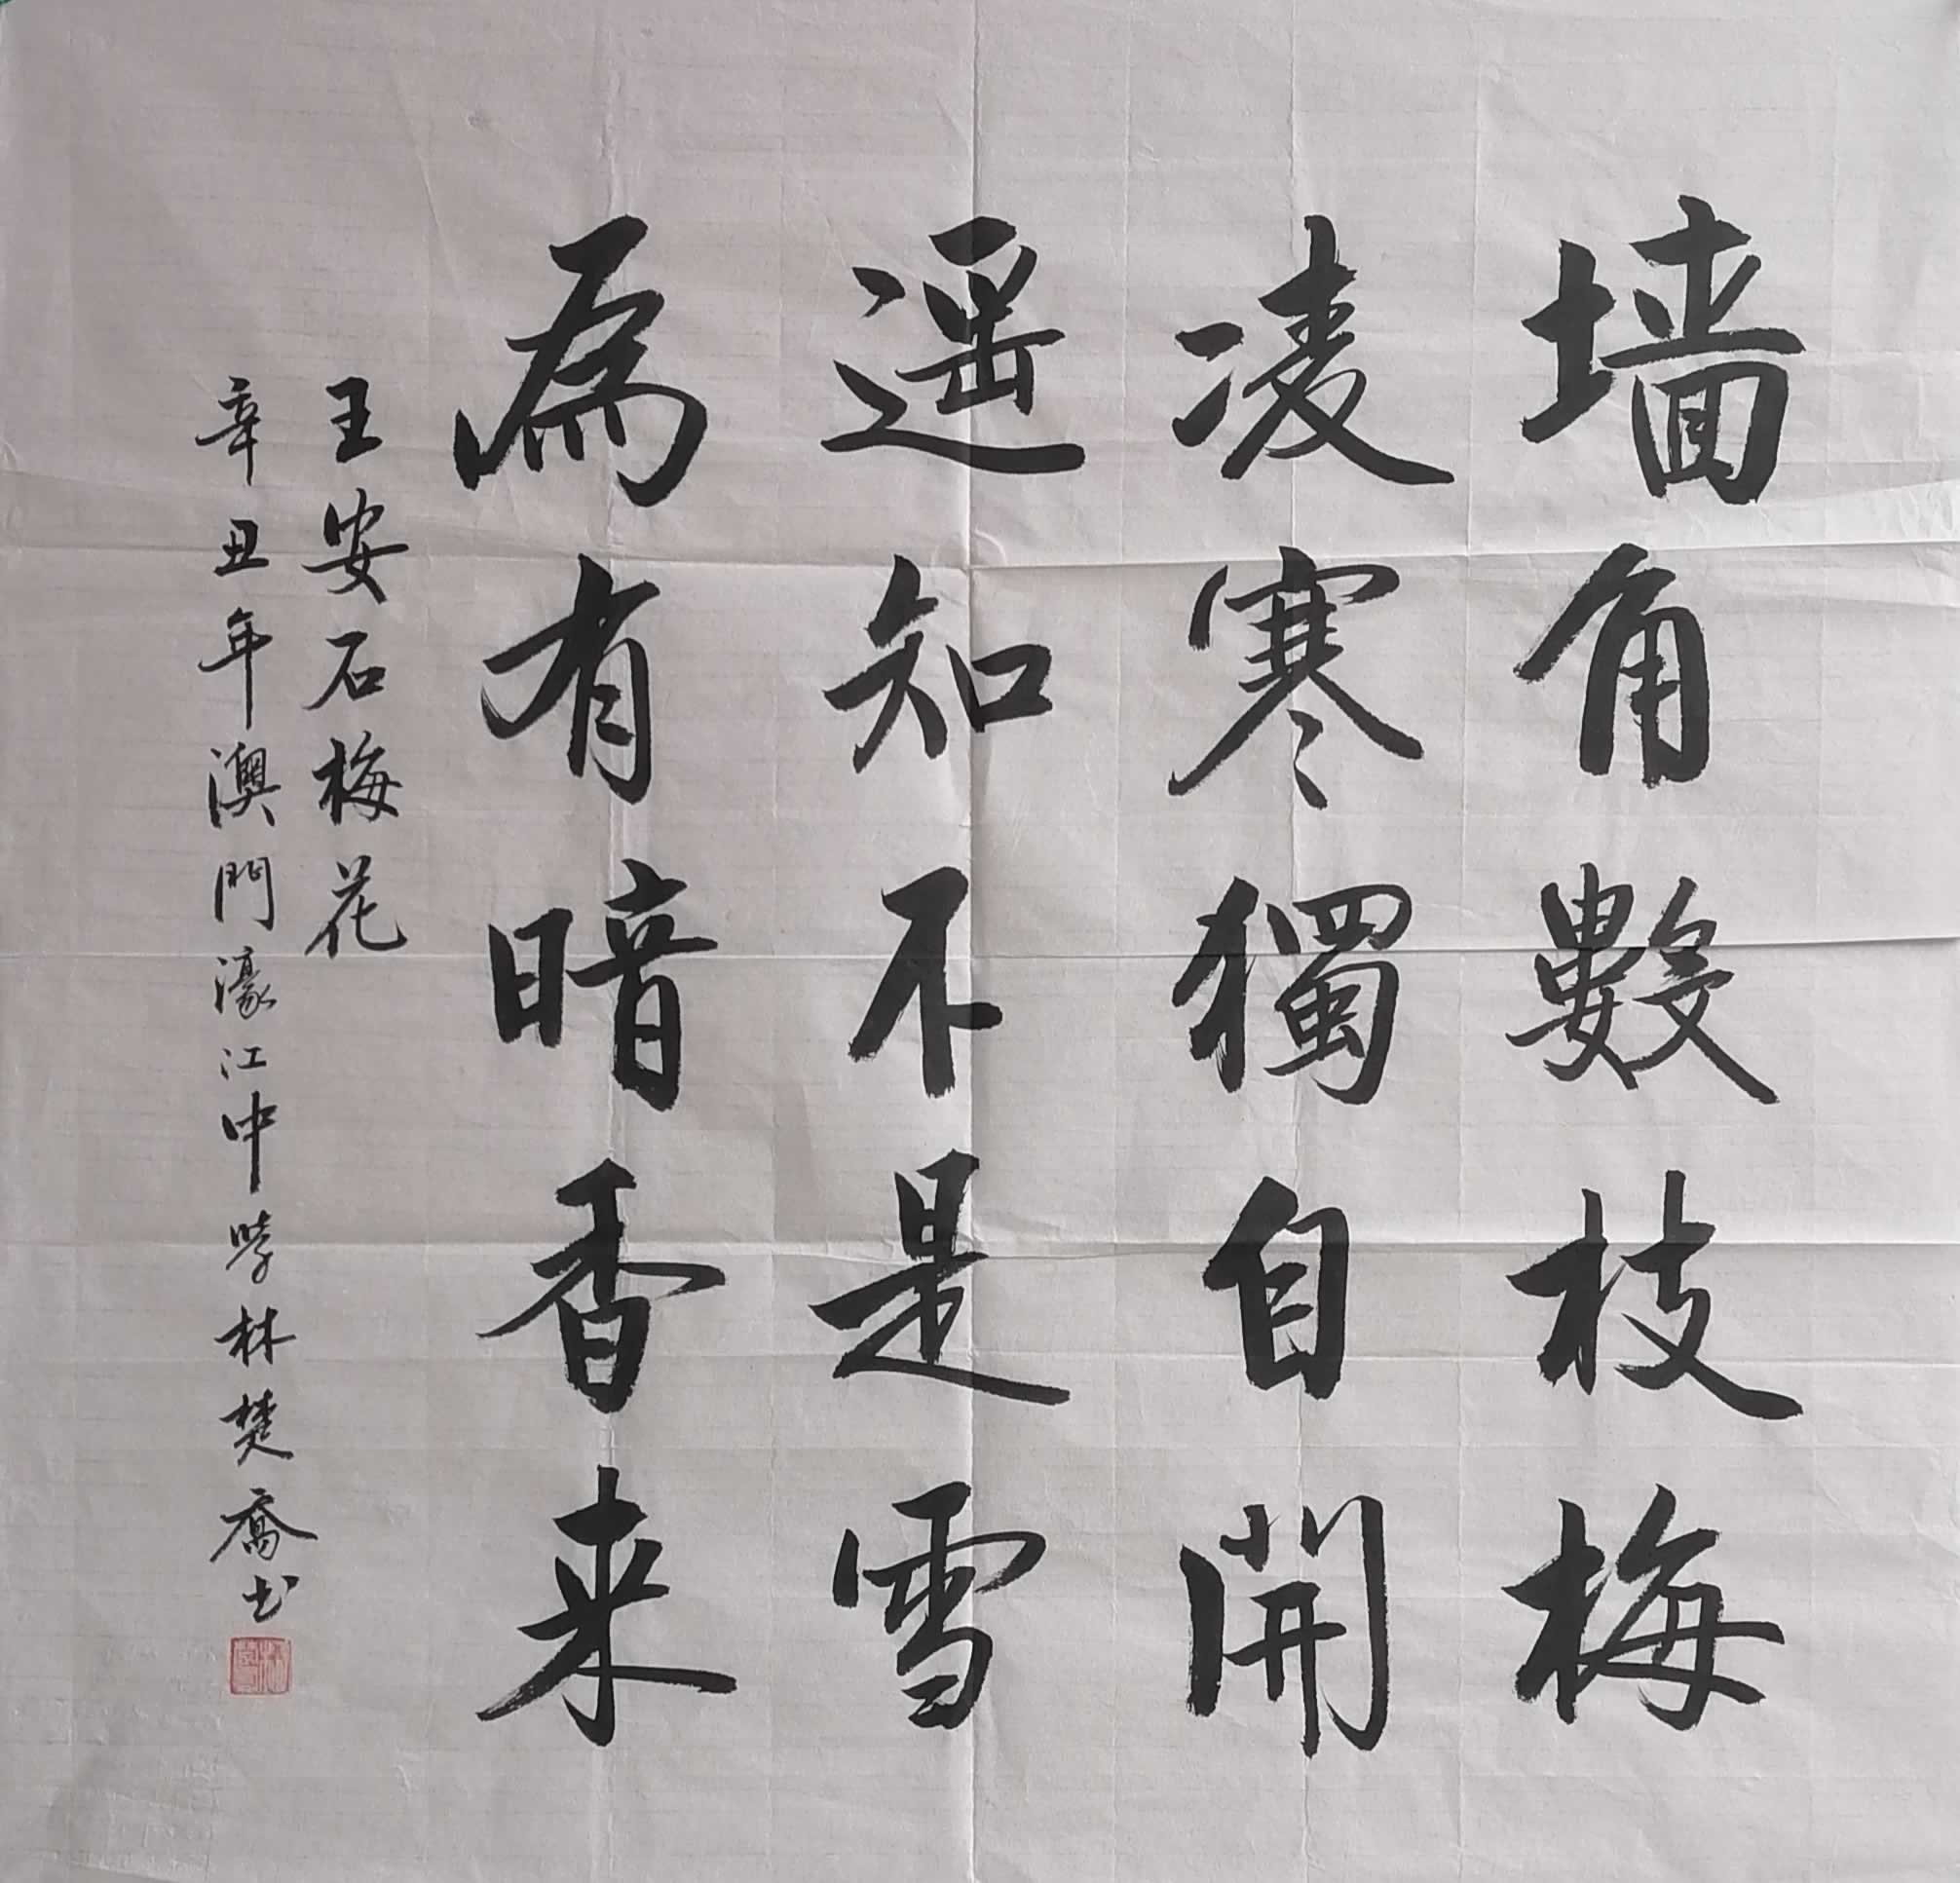 墙角數枝梅
凌寒獨自開
遥知不是雪
為有暗香来
王安石梅花
辛丑年澳門濠江中學林楚喬书